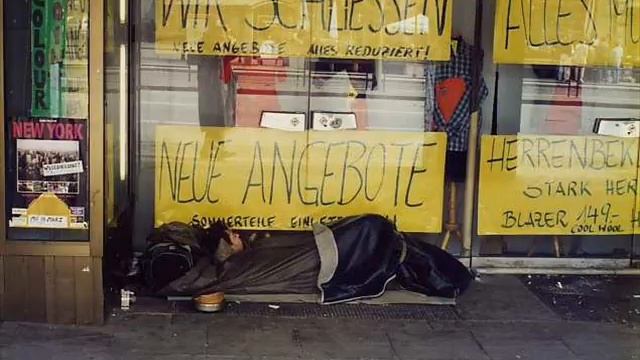 WIR SCHLIESSEN
NEUE ANGEBOTE ALLES REDUZIERT!
ALLES
COLOUR
NEW YORK
NEUE ANGEBOTE
SOMMERTEILE
HERRENBEK
STARK HER
BLAZER 149.-
COOL WOOL